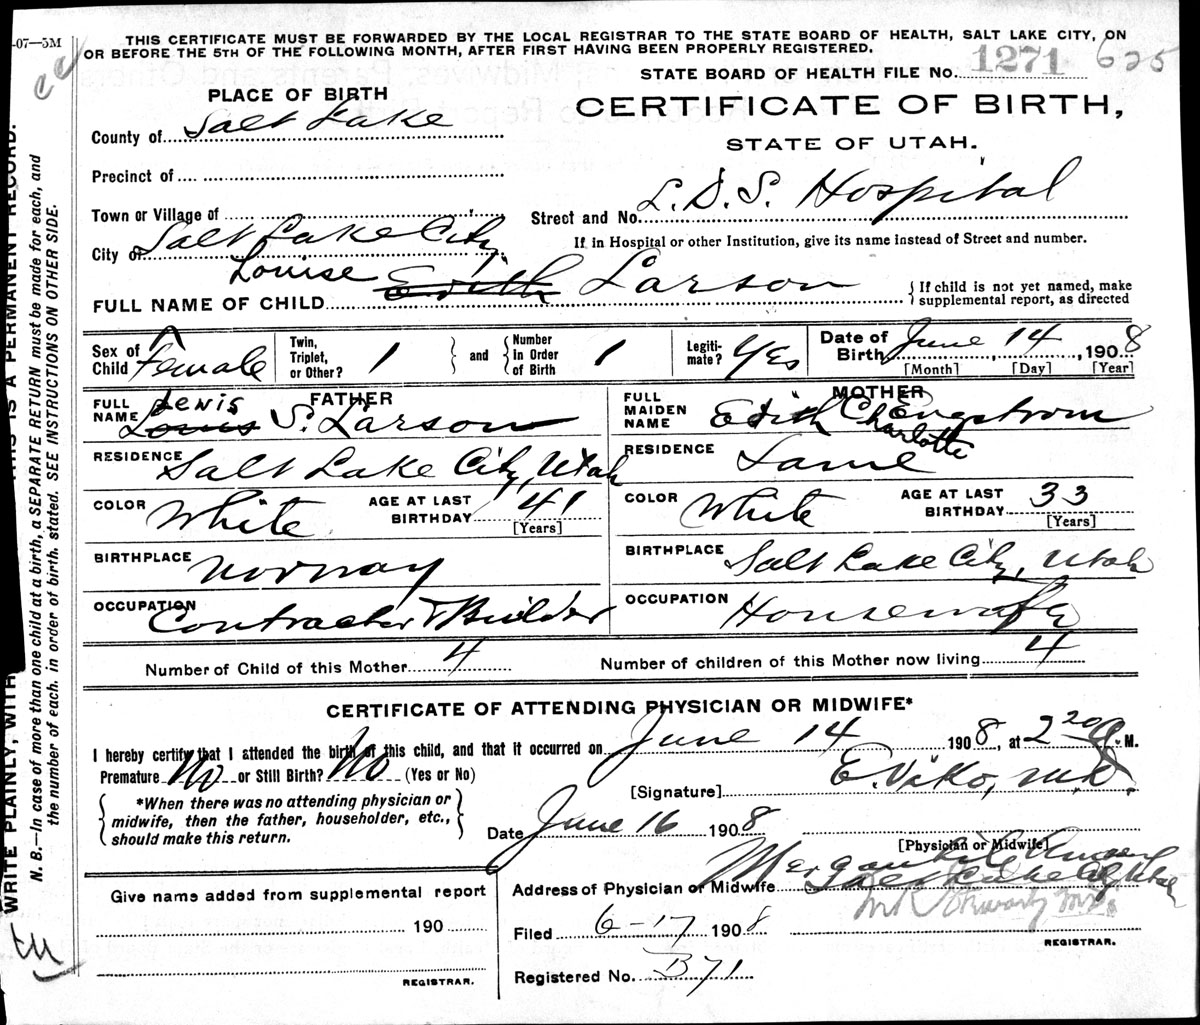 -07—5M
THIS CERTIFICATE MUST BE FORWARDED BY THE LOCAL REGISTRAR TO THE STATE BOARD OF HEALTH, SALT LAKE CITY, ON
OR BEFORE THE 5TH OF THE FOLLOWING MONTH, AFTER FIRST HAVING BEEN PROPERLY REGISTERED.
STATE BOARD OF HEALTH FILE No. 1271 625
PLACE OF BIRTH
CERTIFICATE OF BIRTH,
STATE OF UTAH.
County of Salt Lake
Precinct of
Town or Village of
Street and No. L.D.S. Hospital
City of Salt Lake City
If in Hospital or other Institution, give its name instead of Street and number.
FULL NAME OF CHILD Louise Edith Larson
If child is not yet named, make
supplemental report, as directed
Sex of Child Female
Twin, Triplet, or Other? 1
and Number In Order of Birth 1
Legiti-mate? Yes
Date of Birth June 14, 1908
[Month] [Day] [Year]
FATHER
FULL NAME Lewis Louis S. Larson
MOTHER
FULL MAIDEN NAME Edith Charlotte Engstrom
RESIDENCE Salt Lake City, Utah
RESIDENCE Same
COLOR White AGE AT LAST BIRTHDAY 41 [Years]
COLOR White AGE AT LAST BIRTHDAY 33 [Years]
BIRTHPLACE Norway
BIRTHPLACE Salt Lake City, Utah
OCCUPATION Contractor & Builder
OCCUPATION Housewife
Number of Child of this Mother 4
Number of children of this Mother now living 4
CERTIFICATE OF ATTENDING PHYSICIAN OR MIDWIFE*
I hereby certify that I attended the birth of this child, and that it occurred on June 14 1908, at 2 20 P. M.
Premature No or Still Birth? No (Yes or No)
*When there was no attending physician or
midwife, then the father, householder, etc.,
should make this return.
[Signature] E. Viko, M.D.
Date June 16 1908
[Physician or Midwife]
Address of Physician or Midwife Salt Lake City Utah
Filed 6-17 1908
REGISTRAR.
Registered No. B71
Give name added from supplemental report
190
REGISTRAR.
WRITE PLAINLY, WITH THIS IS A PERMANENT RECORD.
N. B.—In case of more than one child at a birth, a SEPARATE RETURN must be made for each, and
the number of each. in order of birth. stated. SEE INSTRUCTIONS ON OTHER SIDE.